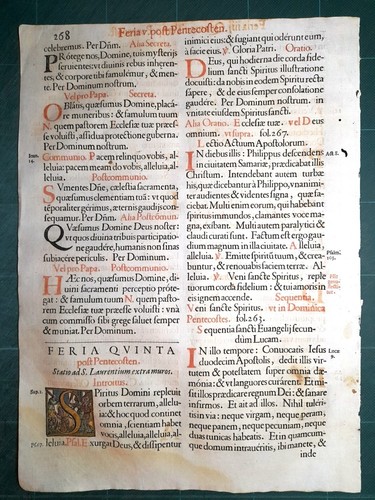 268
Feria v. post Pentecosten.
celebremus. Per Dñm. Alia Secreta.
PRotege nos, Domine, tuis mysterijs
seruientes: vt diuinis rebus inhæren-
tes, & corpore tibi famulemur, & men-
te. Per Dominum nostrum.
Vel pro Papa. Secreta.
OBlatis, quæsumus Domine, placá-
re muneribus: & famulum tuum
N. quem pastorem Ecclesiæ tuæ præef-
se voluisti, assidua protectione guberna.
Per Dominum nostrum.
Ioan. 14.
Communio. Pacem relinquo vobis, al-
leluia: pacem meam do vobis, alleluia,
alleluia. Postcommunio.
SVmentes Dñe, cælestia sacramenta,
quæsumus clementiam tuã: vt quod
tẽporaliter gérimus, æternis gaudijs con-
sequamur. Per Dñm. Alia Postcommun.
QVæsumus Domine Deus noster:
vt quos diuina tribuis participatio-
ne gaudére, humanis non sinas
subiacére periculis. Per Dominum.
Vel pro Papa. Postcommunio.
HÆc nos, quæsumus Domine, di-
uini sacramenti perceptio próte-
gat: & famulum tuum N. quem pasto-
rem Ecclesiæ tuæ præesse voluisti: vnà
cum commisso sibi grege saluet semper
& muniat. Per Dominum.
FERIA QVINTA
post Pentecosten.
Statio ad S. Laurentium extra muros.
Introitus.
Sap. 1.
SPiritus Domini repleuit
orbem terrarum, allelu-
ia: & hoc quod continet
omnia, scientiam habet
vocis, alleluia, alleluia, al-
Psal. 67.
leluia. Psal. Exurgat Deus, & dissipentur
inimici eius: & fugiant qui odérunt eum,
à facie eius. V. Gloria Patri. Oratio.
DEus, qui hodierna die corda fide-
lium sancti Spiritus illustratione
docuisti: da nobis in eodem Spiritu recta
sapere, & de eius semper consolatione
gaudére. Per Dominum nostrum. in
vnitate eiusdem Spiritus sancti.
Alia Oratio. Ecclesiæ tuæ. vel Deus
omnium. vt supra. fol. 267.
Lectio Actuum Apostolorum.
Act. 8.
IN diebus illis: Philippus descendens
in ciuitatem Samariæ, prædicabat illis
Christum. Intendebant autem turbæ
his, quæ dicebantur à Philippo, vnanimi-
ter audientes & videntes signa, quæ fa-
ciebat. Multi enim eorum, qui habebant
spiritus immundos, clamantes voce ma-
gna, exibant. Multi autem paralytici &
claudi curati sunt. Factum est ergo gau-
dium magnum in illa ciuitate. Alleluia, al-
leluia. V. Emitte spiritũ tuum, & crea-
Psalm. 103.
buntur, & renouabis faciem terræ. Al-
leluia. V. Veni sancte Spiritus, reple
tuorum corda fidelium: & tui amoris in
eis ignem accende. Sequentia.
Veni sancte Spiritus. vt in Dominica
Pentecostes. fol. 263.
Sequentia sancti Euangelij secun-
dùm Lucam.
Lucæ 9.
IN illo tempore: Conuocatis Iesus
duodecim Apostolis, dedit illis vir-
tutem & potestatem super omnia dæ-
mónia: & vt languores curarent. Et mi-
sit illos prædicare regnum Dei: & sanare
infirmos. Et ait ad illos: Nihil tuléri-
tis in via: neque virgam, neque peram,
neque panem, neque pecuniam, neque
duas tunicas habeatis. Et in quamcum-
que domum intrauéritis, ibi manete, &
inde